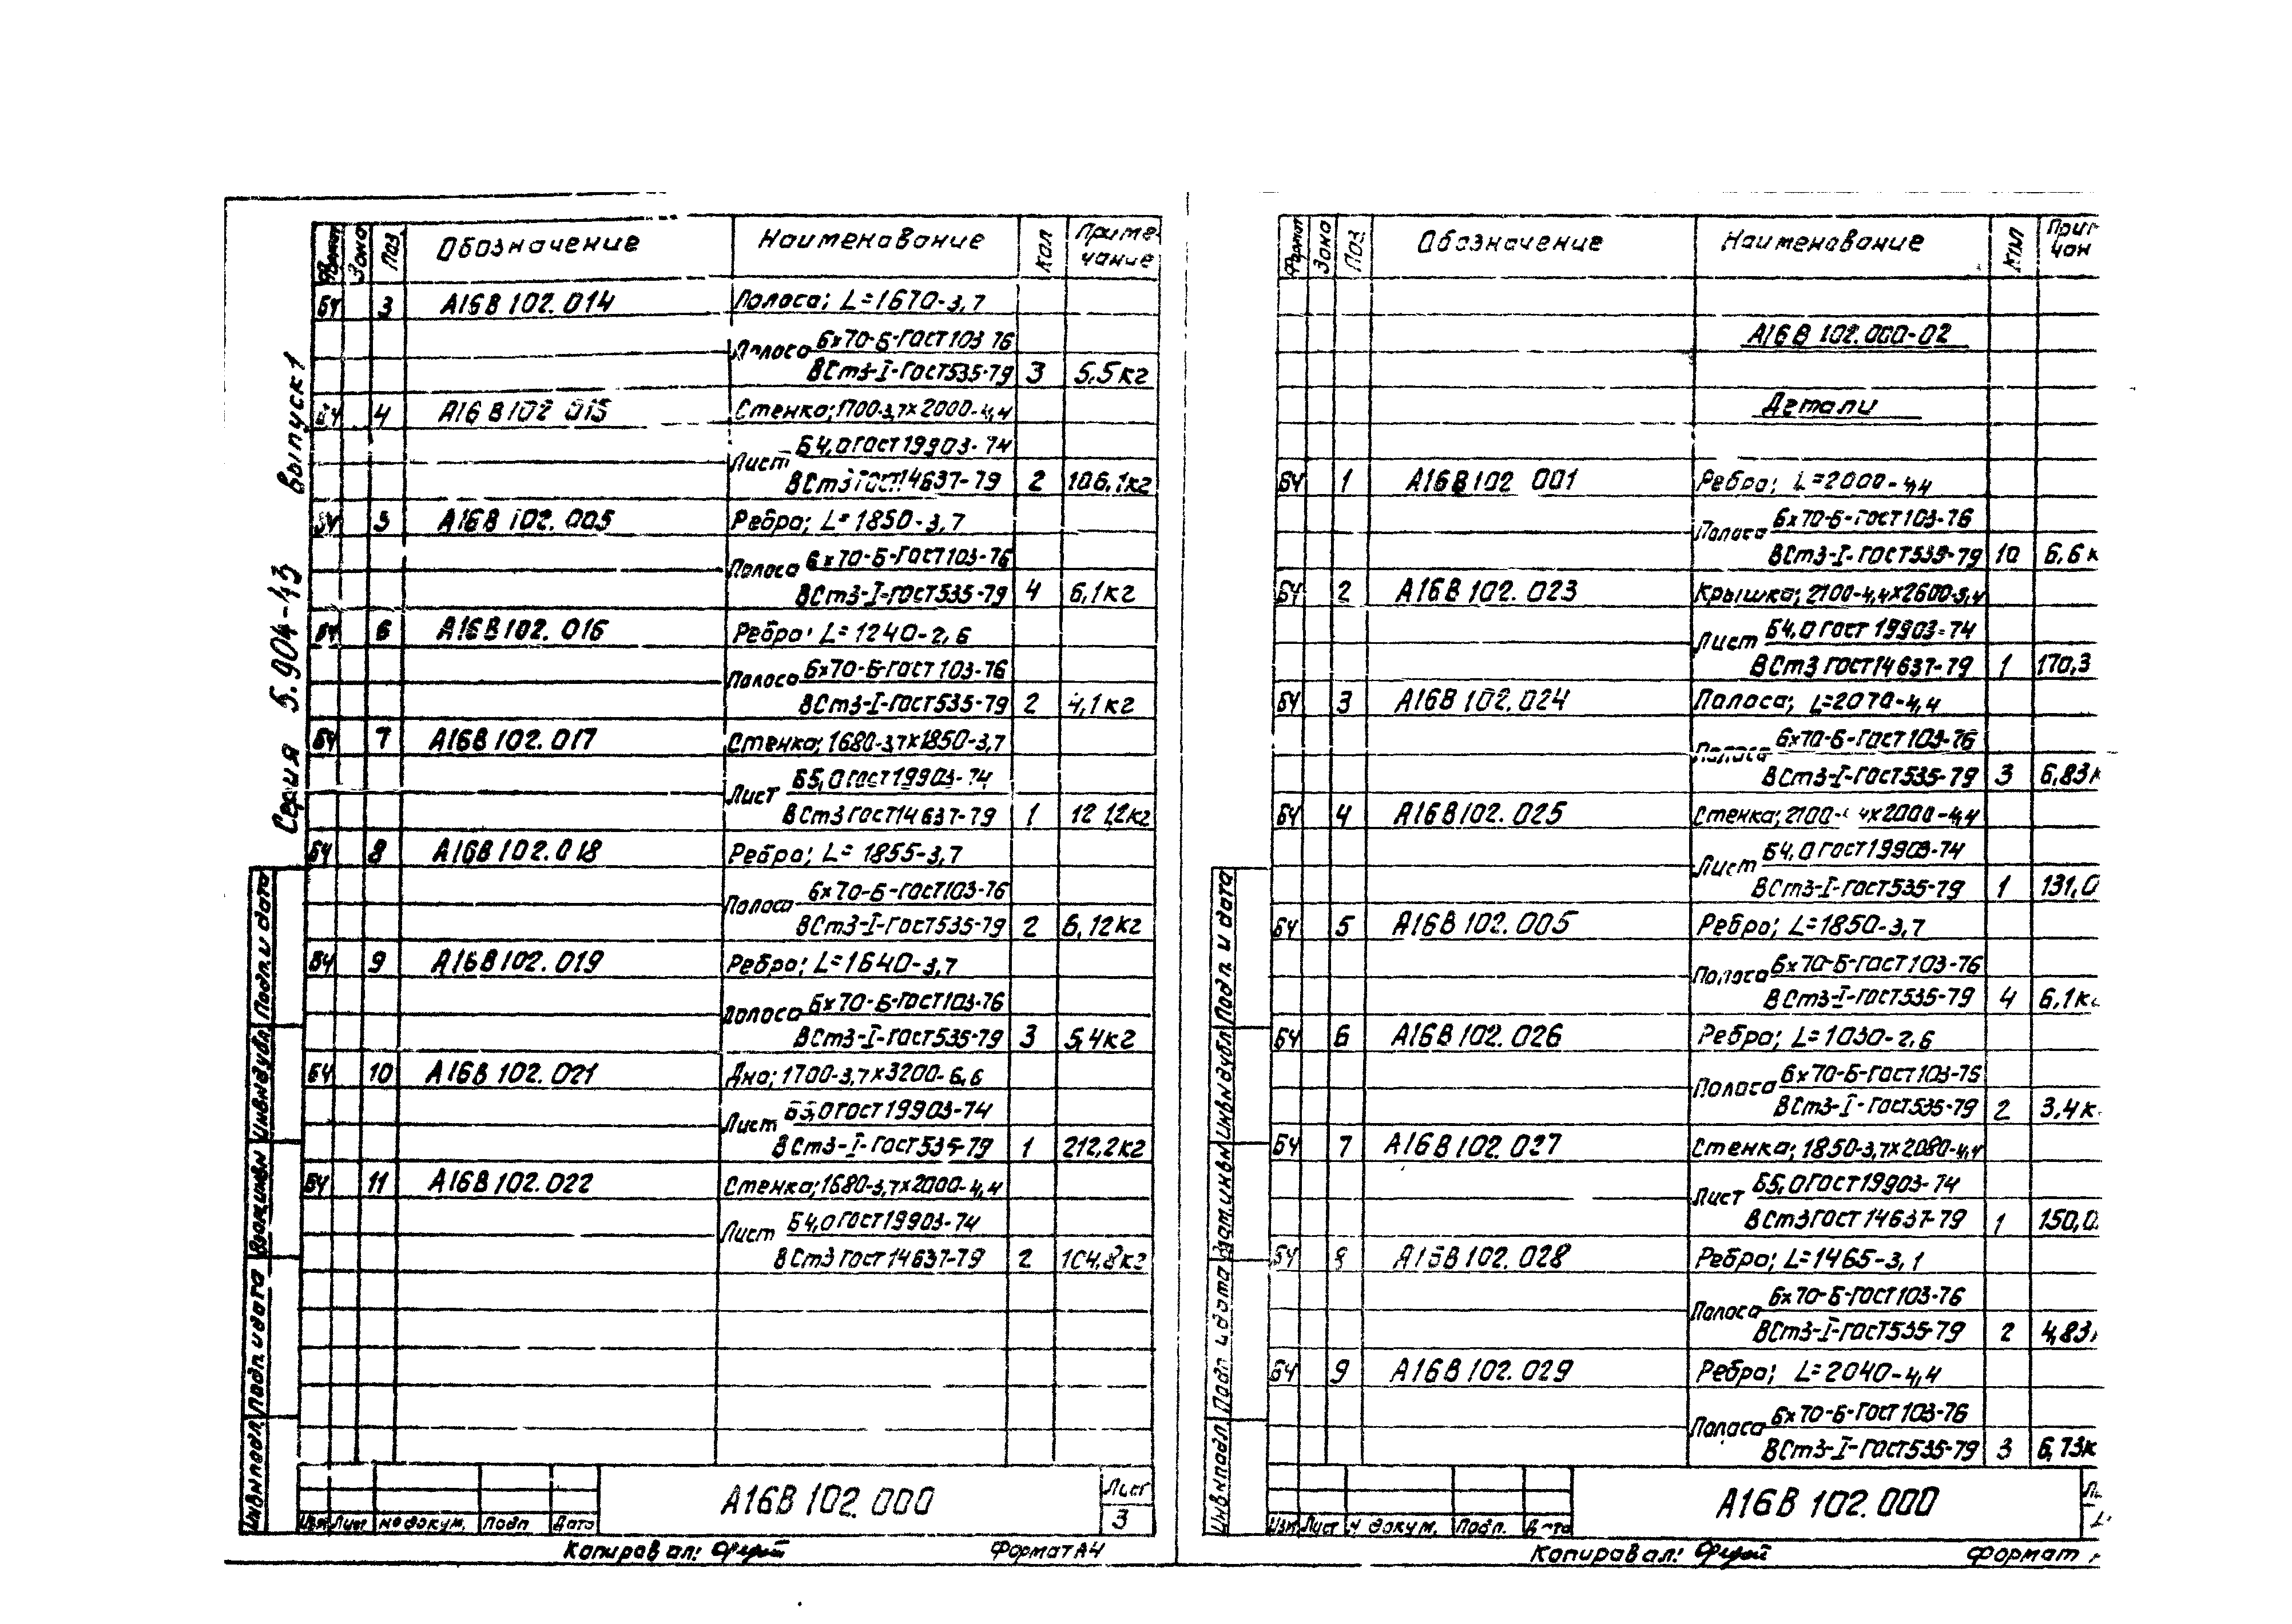 Серия 5.904-43 Выпуск 1
Формат Зона Поз. Обозначение Наименование Кол Приме
чание
БЧ 3 А16В 102.014 Полоса; L=1670-3,7
Полоса 6х70-Б-ГОСТ103 76
ВСт3-I-ГОСТ535-79 3 5,5кг
БЧ 4 А16В102 015 Стенка; 1700-3,7х2000-4,4
Лист Б4,0ГОСТ19903-74
ВСт3ГОСТ14637-79 2 106,1кг
БЧ 5 А16В 102.005 Ребро; L=1850-3,7
Полоса 6х70-Б-ГОСТ103-76
ВСт3-I-ГОСТ535-79 4 6,1кг
БЧ 6 А16В102.016 Ребро; L=1240-2,6
Полоса 6х70-Б-ГОСТ103-76
ВСт3-I-ГОСТ535-79 2 4,1кг
БЧ 7 А16В 102.017 Стенка; 1680-3,7х1850-3,7
Лист Б5,0ГОСТ19903-74
ВСт3ГОСТ14637-79 1 121,2кг
БЧ 8 А16В102.018 Ребро; L=1855-3,7
Полоса 6х70-Б-ГОСТ103-76
ВСт3-I-ГОСТ535-79 2 6,12кг
БЧ 9 А16В102.019 Ребро; L=1640-3,7
Полоса 6х70-Б-ГОСТ103-76
ВСт3-I-ГОСТ535-79 3 5,4кг
БЧ 10 А16В 102.021 Дно; 1700-3,7х3200-6,6
Лист Б5,0ГОСТ19903-74
ВСт3-I-ГОСТ535-79 1 212,2кг
БЧ 11 А16В102.022 Стенка; 1680-3,7х2000-4,4
Лист Б4,0ГОСТ19903-74
ВСт3ГОСТ14637-79 2 104,8кг
Инв№подл. Подп. и дата Взам.инв№ Инв№дубл. Подп. и дата
Изм Лист №докум. Подп Дата
А16В 102.000
Лист
3
Копировал: Формат А4
Формат Зона Поз Обозначение Наименование Кол Прим
чан
А16В 102.000-02
Детали
БЧ 1 А16В102 001 Ребро; L=2000-4,4
Полоса 6х70-Б-ГОСТ103-76
ВСт3-I-ГОСТ535-79 10 6,6к
БЧ 2 А16В102.023 Крышка; 2100-4,4х2600-5,4
Лист Б4,0 ГОСТ 19903-74
ВСт3 ГОСТ14637-79 1 170,3
БЧ 3 А16В 102.024 Полоса; L=2070-4,4
Полоса 6х70-Б-ГОСТ103-76
ВСт3-I-ГОСТ535-79 3 6,83к
БЧ 4 А16В102.025 Стенка; 2100- 4х2000-4,4
Лист Б4,0ГОСТ19903-74
ВСт3-I-ГОСТ535-79 1 131,0
БЧ 5 А16В 102.005 Ребро; L=1850-3,7
Полоса 6х70-Б-ГОСТ103-76
ВСт3-I-ГОСТ535-79 4 6,1кг
БЧ 6 А16В102.026 Ребро; L=1030-2,6
Полоса 6х70-Б-ГОСТ103-76
ВСт3-I-ГОСТ535-79 2 3,4к
БЧ 7 А16В102.027 Стенка; 1850-3,7х2080-4,4
Лист Б5,0ГОСТ19903-74
ВСт3ГОСТ14637-79 1 150,0
БЧ 8 А16В102.028 Ребро; L=1465-3,1
Полоса 6х70-Б-ГОСТ103-76
ВСт3-I-ГОСТ535-79 2 4,83к
БЧ 9 А16В 102.029 Ребро; L=2040-4,4
Полоса 6х70-Б-ГОСТ103-76
ВСт3-I-ГОСТ535-79 3 6,73к
Инв№подл. Подп и дата Взам.инв№ Инв№дубл. Подп и дата
Изм Лист № докум. Подп. Дата
А16В 102.000
Копировал: Формат